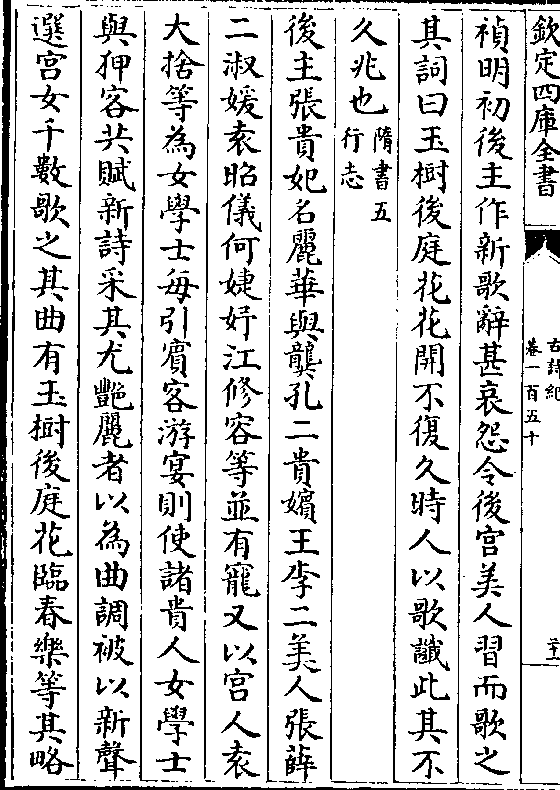 欽定四庫全書
古詩紀
卷一百五十
二十一
禎明初後主作新歌辭甚哀怨令後宮美人習而歌之
其詞曰玉樹後庭花花開不復久時人以歌讖此其不
久兆也隋書五行志
後主張貴妃名麗華與龔孔二貴嬪王李二美人張薛
二淑媛袁昭儀何婕妤江修容等並有寵又以宮人袁
大捨等為女學士每引賓客游宴則使諸貴人女學士
與狎客共賦新詩采其尤艷麗者以為曲調被以新聲
選宮女千數歌之其曲有玉樹後庭花臨春樂等其略